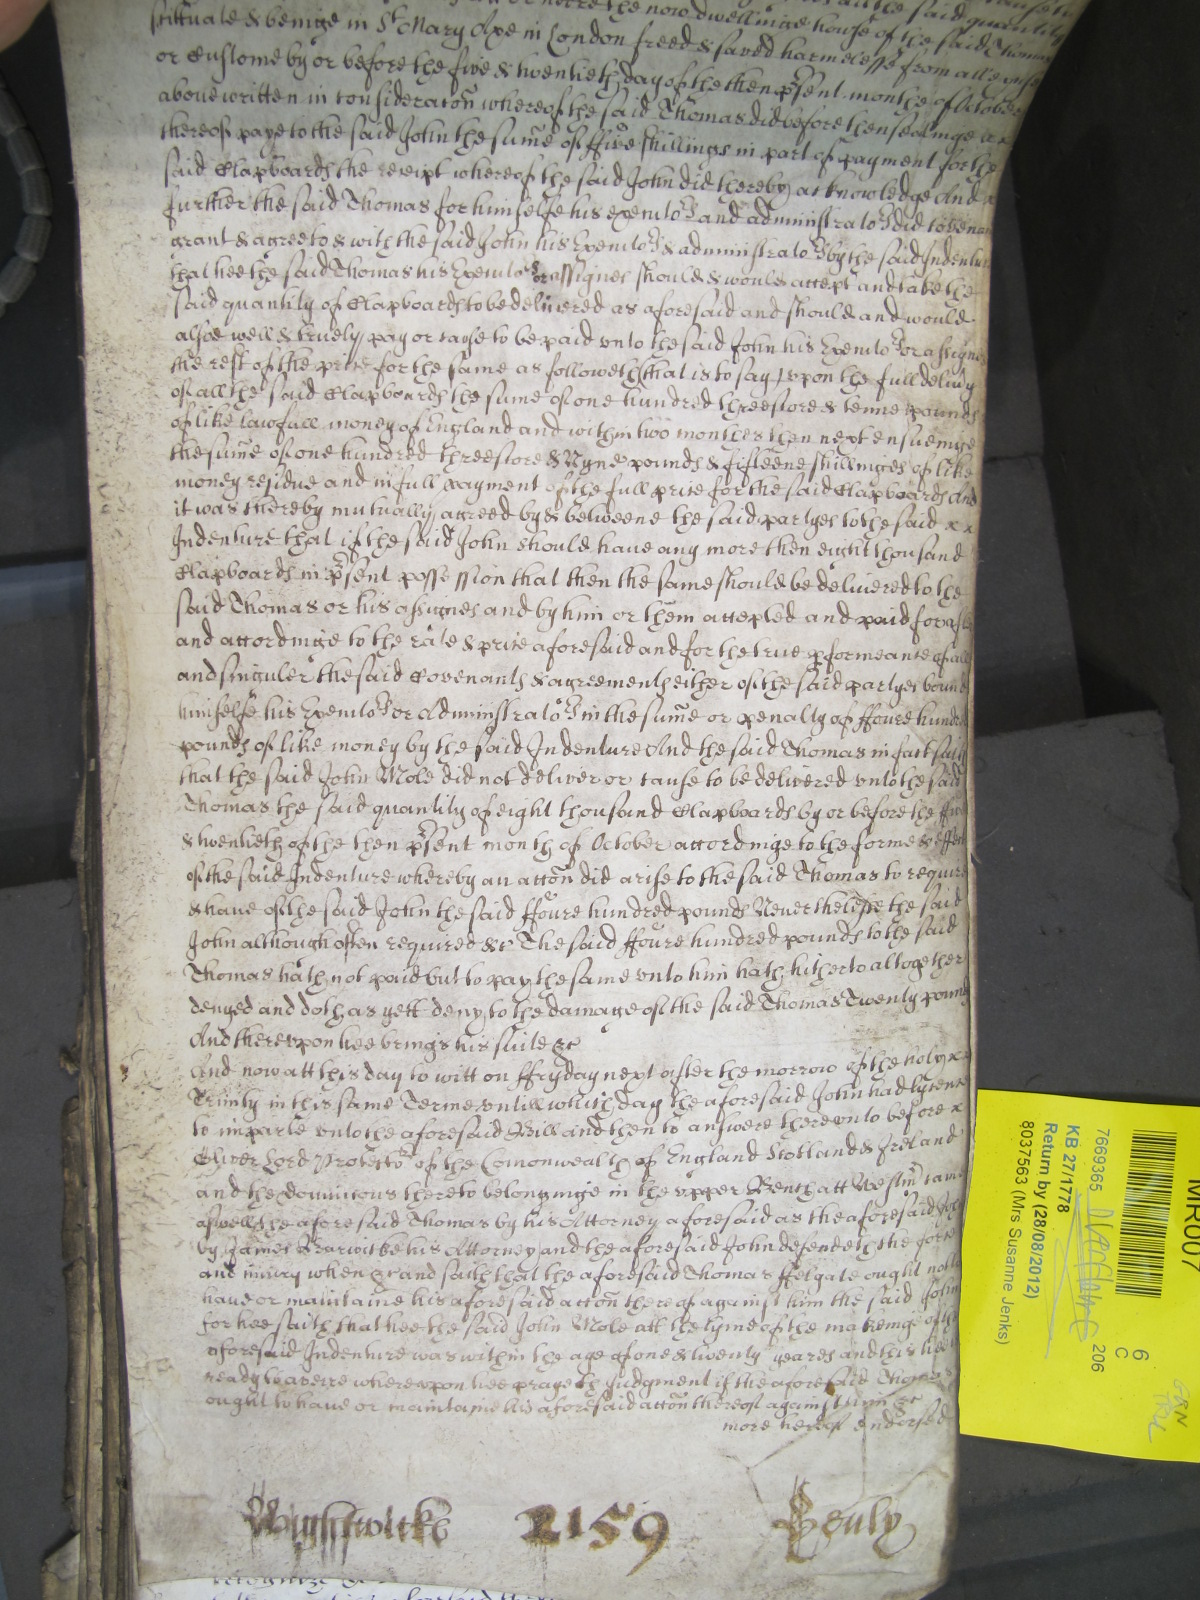 the now dwellinge house of the said Thomas
scittuate & beinge in St Mary Axe in London freed & saved harmelesse from all
or Custome by or before the five & twentieth day of the then p̄sent month of October
abovewritten in consideracōn whereof the said Thomas did before thensealinge
thereof paye to the said John the sum̄e of ffive shillings in part of payment for the
said Clapboards the receipt whereof the said John did thereby acknowledge And x
further the said Thomas for himselfe his executors and administrators did covenant
grant & agree to & with the said John his Executors & administrators by the said Indenture
that hee the said Thomas his Executors or assignes should & would accept and take the
said quantity of Clapboards to be delivered as aforesaid and should and would
alsoe well & truely pay or cause to be paid vnto the said John his Executors or assignes
the rest of the price for the same as followeth (that is to say) vpon the full delivy
of all the said Clapboards the sum̄e of one hundred threescore & tenne pounds
of like lawfull money of England and within two monthes then next ensueinge
the sum̄e of one hundred threescore & Nyne pounds & fifteene shillinges of like
money residue and in full payment of the full price for the said Clapboards And
it was thereby mutually agreed by & betweene the said partyes to the said x x
Indenture that if the said John should have any more then eight thousand
Clapboards in p̄sent possession that then the same should be delivered to the
said Thomas or his assignes and by him or them accepted and paid for
and accordinge to the rate & price aforesaid and for the true pformeance of all
and singuler the said Covenants & agreements either of the said partyes bound
himselfe his Executors or Administrators in the sum̄e or penalty of ffoure hundred
pounds of like money by the said Indenture And the said Thomas in fact saith
that the said John Mole did not deliver or cause to be delivered vnto the said
Thomas the said quantity of eight thousand Clapboards by or before the five
& twentieth of the then p̄sent month of October accordinge to the forme & effect
of the said Indenture whereby an accōn did arise to the said Thomas to require
& have of the said John the said ffoure hundred pounds Neverthelesse the said
John although often required &c The said ffoure hundred pounds to the said
Thomas hath not paid but to pay the same vnto him hath hitherto altogether
denyed and doth as yett deny to the damage of the said Thomas Twenty pounds
And therevpon hee brings his suite &c
And now att this day to witt on ffryday next after the morrow of the holy x x
Trinity in this same Terme vntill which day the aforesaid John had lycence
to imparle vnto the aforesaid Bill and then to answere therevnto before x
Oliver Lord Protector of the Com̄onwealth of England Scotland & Ireland
and the dominions thereto belonginge in the vpper Bench att Westm̄ came
aswell the aforesaid Thomas by his Attorney aforesaid as the aforesaid John
by James his Attorney and the aforesaid John defendeth the force
and iniury when &c and saith that the aforesaid Thomas ffelgate ought not to
have or maintaine his aforesaid accōn thereof against him the said John
for hee saith that hee the said John Mole att the tyme of the makeinge of the
aforesaid Indenture was within the age of one & twenty yeares and this hee is
ready to averre wherevpon hee prayeth Judgment if the aforesaid Thomas
ought to have or maintaine his aforesaid accōn thereof against him &c
more hereof endorsed
Wightwicke 2159 Geuly
MR007
6
C
7669365 206
KB 27/1778
Return by (28/08/2012)
8037563 (Mrs Susanne Jenks)